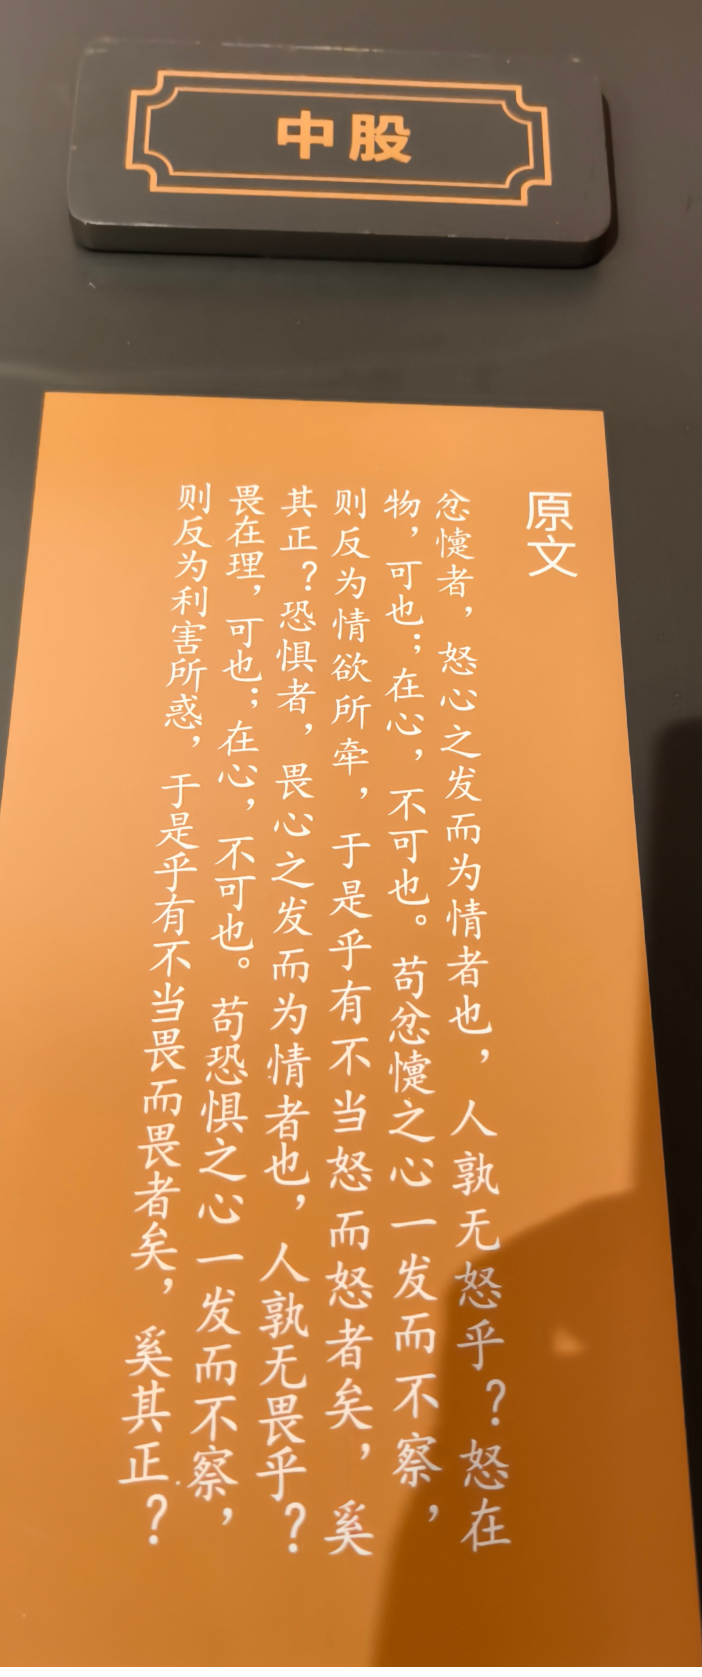 中股
原文
忿懥者，怒心之发而为情者也，人孰无怒乎？怒在
物，可也；在心，不可也。苟忿懥之心一发而不察，
则反为情欲所牵，于是乎有不当怒而怒者矣，奚
其正？恐惧者，畏心之发而为情者也，人孰无畏乎？
畏在理，可也；在心，不可也。苟恐惧之心一发而不察，
则反为利害所惑，于是乎有不当畏而畏者矣，奚其正？